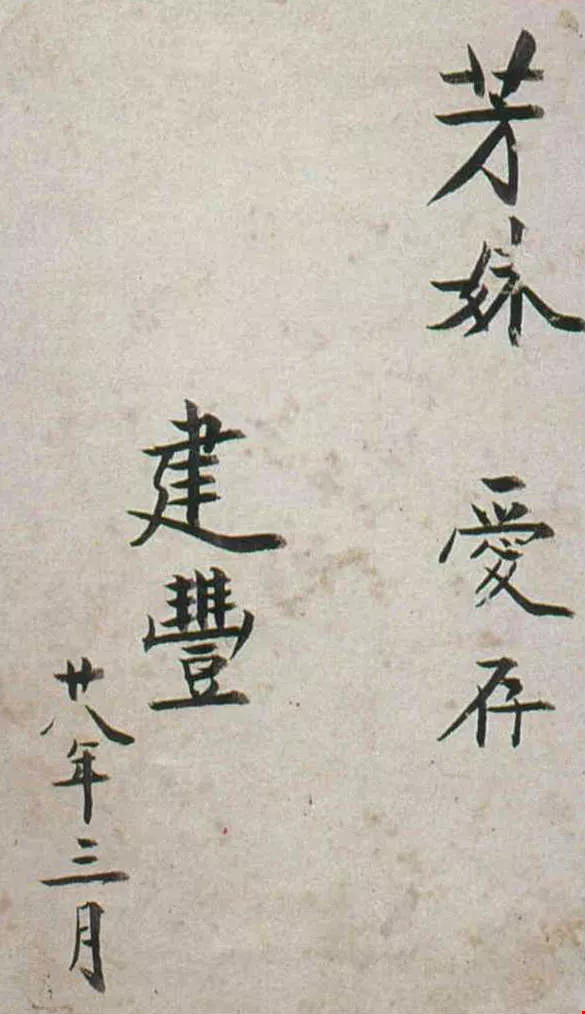 芳妹 愛存
建豐
廿八年三月